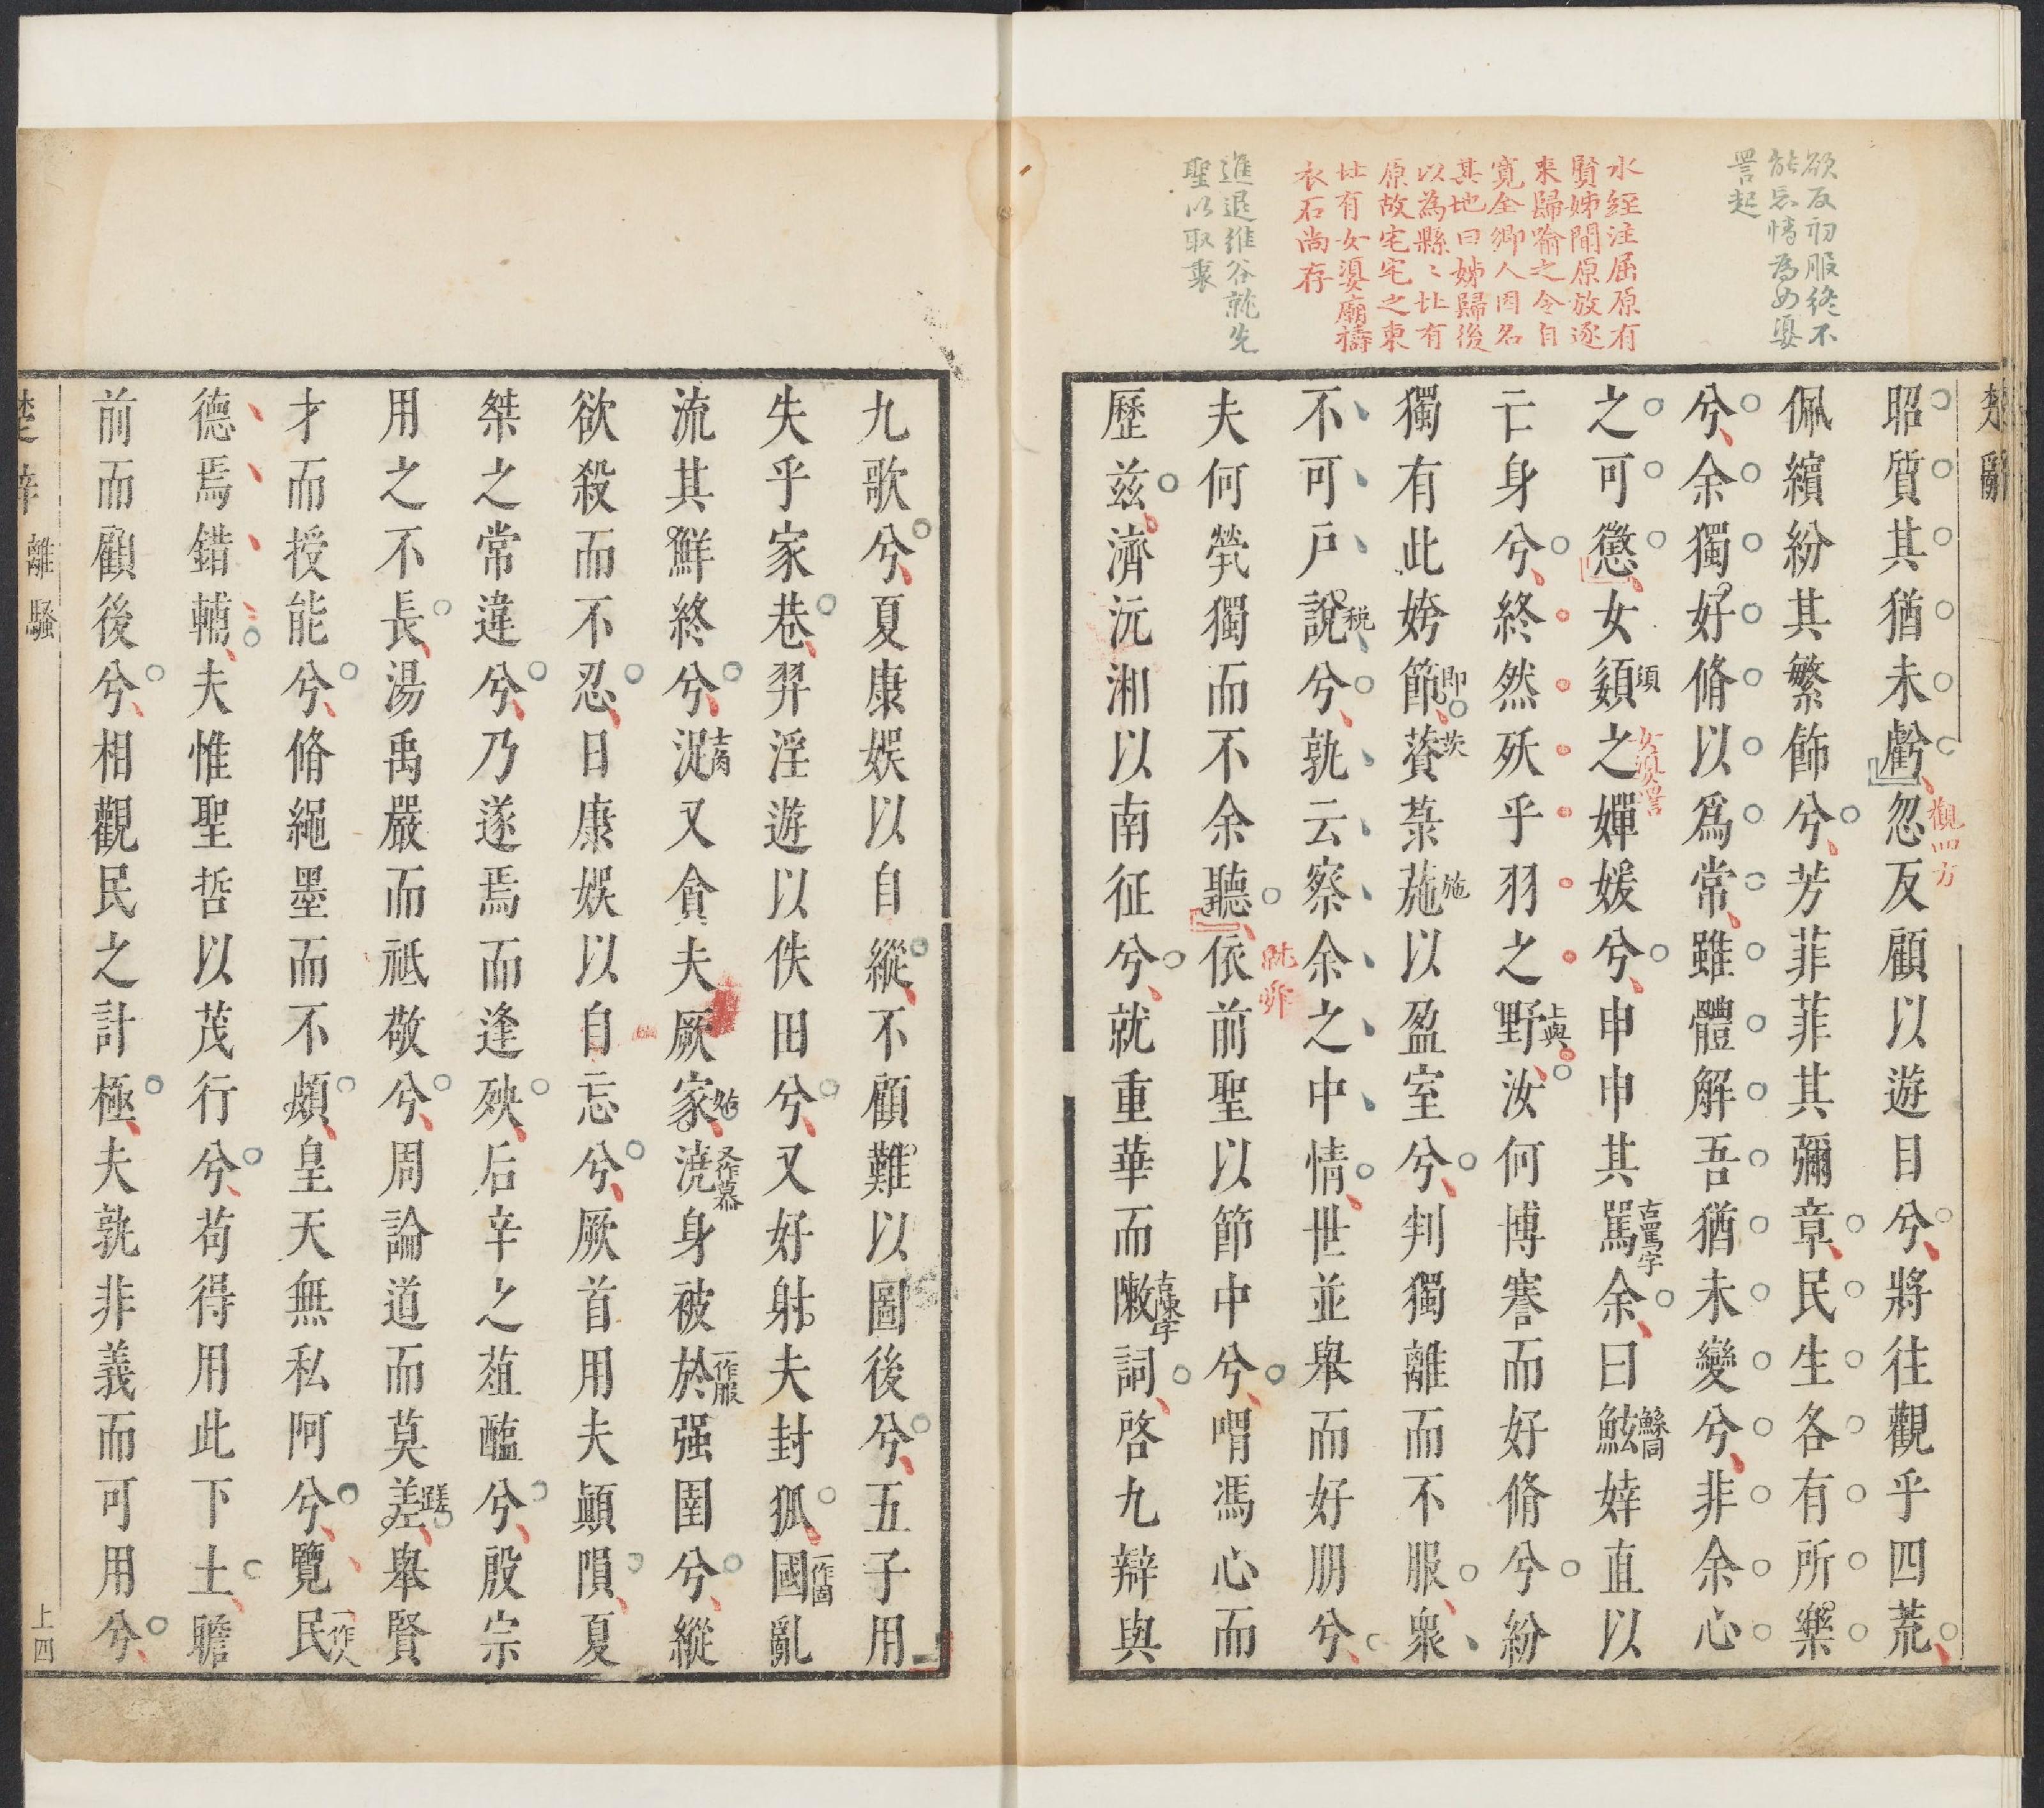 楚辭
欲反初服終不
能忘情為女嬃
詈起
水經注屈原有
賢姊聞原放逐
來歸喻之令自
寬全鄉人因名
其地曰姊歸後
以為縣〻北有
原故宅宅之東
北有女嬃廟擣
衣石尚存
進退維谷就先
聖以取衷
昭質其猶未虧忽反顧以遊目兮將往觀乎四荒
觀四方
佩繽紛其繁飾兮芳菲菲其彌章民生各有所樂
兮余獨好脩以爲常雖體解吾猶未變兮非余心
之可懲女嬃之嬋媛兮申申其駡余曰鮌婞直以
須
女嬃詈
古罵字
鯀同
亡身兮終然殀乎羽之野汝何博謇而好脩兮紛
上與
獨有此姱節薋菉葹以盈室兮判獨離而不服衆
即
茨
施
不可戶說兮孰云察余之中情世並舉而好朋兮
税
夫何煢獨而不余聽依前聖以節中兮喟馮心而
就舜
歷兹濟沅湘以南征兮就重華而敶詞啓九辯與
古陳字
九歌兮夏康娛以自縱不顧難以圖後兮五子用
失乎家巷羿淫遊以佚田兮又好射夫封狐國亂
一作固
流其鮮終兮浞又貪夫厥家澆身被於强圉兮縱
士角
姑
又作奡
一作服
欲殺而不忍日康娛以自忘兮厥首用夫顚隕夏
桀之常違兮乃遂焉而逢殃后辛之菹醢兮殷宗
用之不長湯禹嚴而祗敬兮周論道而莫差舉賢
蹉
才而授能兮脩繩墨而不頗皇天無私阿兮覽民
一作人
德焉錯輔夫惟聖哲以茂行兮苟得用此下土瞻
前而顧後兮相觀民之計極夫孰非義而可用兮
楚辭 離騷
上四